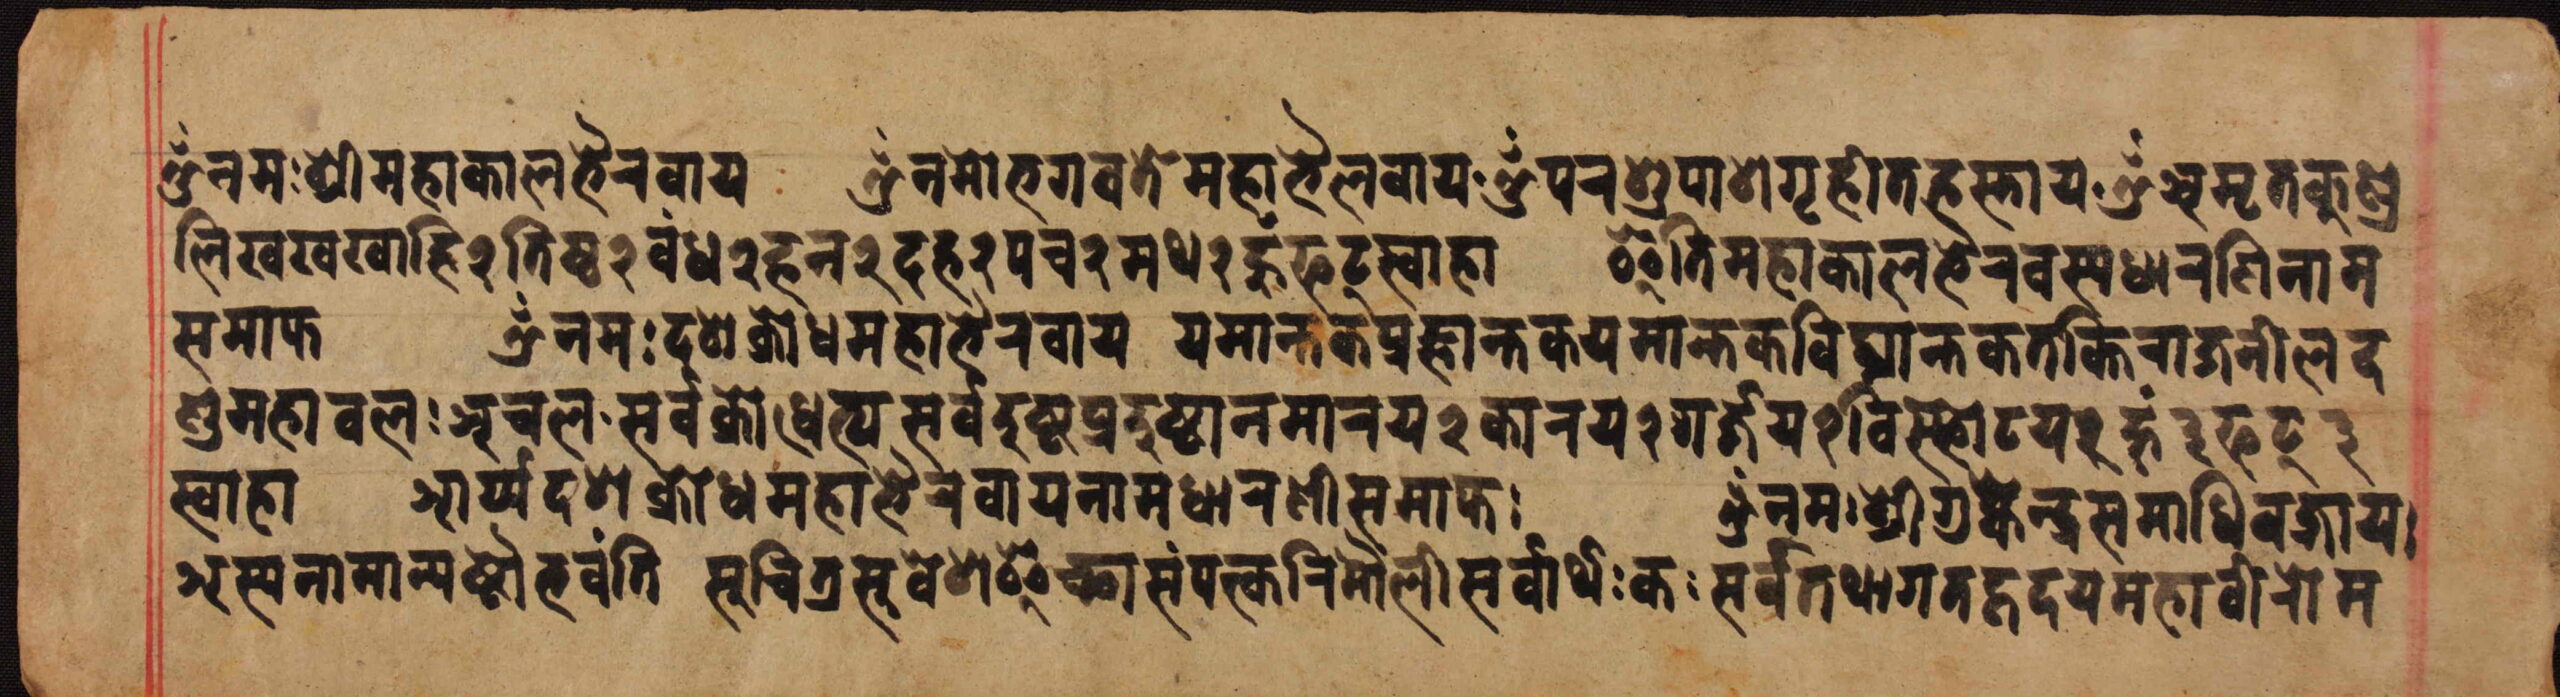 ॐ नमः श्रीमहाकालभैरवाय ॐ नमो भगवते महाभैलवाय ॐ परशुपाशगृहीतहस्ताय ॐ अमृतकुण्ड
लि खखखाहि २ तिष्ठ २ बंध २ हन २ दह २ पच २ मथ २ हूं फट् स्वाहा इति महाकालभैरवस्य धारणि नाम
समाप्त ॐ नमः दशक्रोधमहाभैरवाय यमान्तकप्रज्ञान्तकयमान्तकविघ्नान्तकतर्कि राजनीलद
ण्डमहाबलः अचल सर्वक्रोधेभ्य सर्वदुष्टप्रदुष्टान मारय २ कारय २ गर्जय २ विस्फोटय २ हूं ३ फट् ३
स्वाहा आर्य्यदशक्रोधमहाभैरवाय नाम धारणी समाप्तः ॐ नमः श्रीगुह्येन्द्रसमाधिवज्राय
अस्य नामान्यष्टौ भवंति सुचित्रसुवेश इच्छासंपत्करि मौली सर्वार्थः कः सर्वतथागतहृदयमहावीरो म